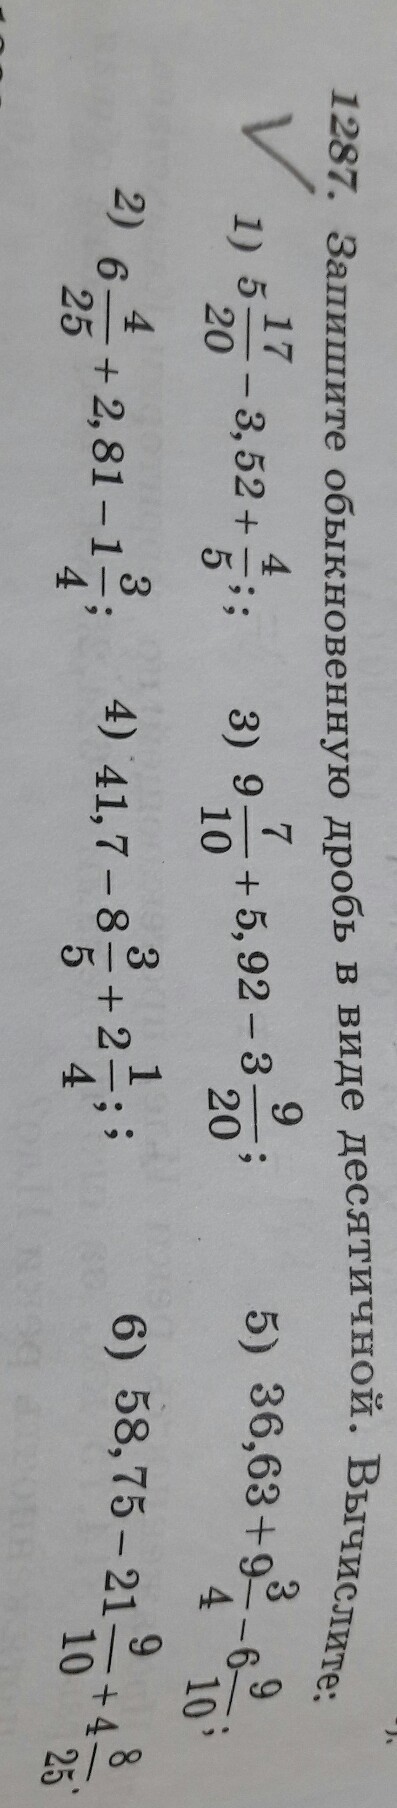 1287. Запишите обыкновенную дробь в виде десятичной. Вычислите:
1) 5 17/20 − 3,52 + 4/5; ; 3) 9 7/10 + 5,92 − 3 9/20; 5) 36,63 + 9 3/4 − 6 9/10;
2) 6 4/25 + 2,81 − 1 3/4; 4) 41,7 − 8 3/5 + 2 1/4; ; 6) 58,75 − 21 9/10 + 4 8/25.